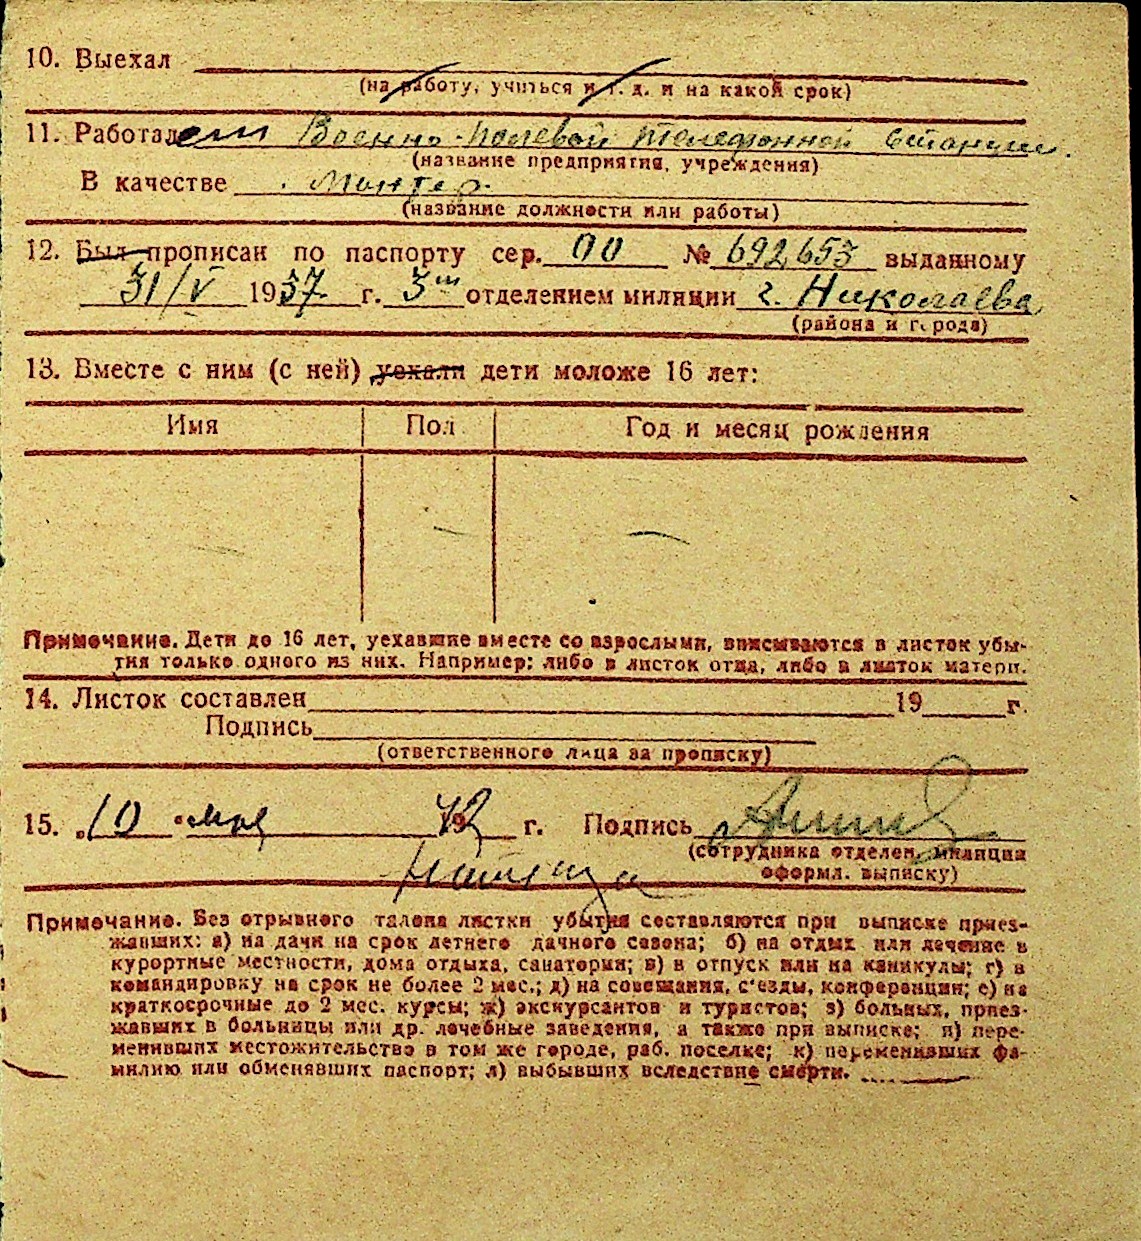 10. Выехал
(на работу, учиться и т. д. и на какой срок)
11. Работал Военно-полевой телефонной станции.
(название предприятия, учреждения)
В качестве Монтер.
(название должности или работы)
12. Был прописан по паспорту сер. № 692653 выданному
31/V 1937 г. 3м отделением милиции г. Николаева
(района и города)
13. Вместе с ним (с ней) уехали дети моложе 16 лет:
Имя Пол Год и месяц рождения
Примечание. Дети до 16 лет, уехавшие вместе со взрослыми, вписываются в листок убы-
тия только одного из них. Например: либо в листок отца, либо в листок матери.
14. Листок составлен 19 г.
Подпись
(ответственного лица за прописку)
15. „10“ мая г. Подпись
(сотрудника отделен. милиции
оформл. выписку)
Примечание. Без отрывного талона листки убытия составляются при выписке приез-
жавших: а) на дачи на срок летнего дачного сезона; б) на отдых или лечение в
курортные местности, дома отдыха, санатория; в) в отпуск или на каникулы; г) в
командировку на срок не более 2 мес.; д) на совещания, с'езды, конференции; е) на
краткосрочные до 2 мес. курсы; ж) экскурсантов и туристов; з) больных, приез-
жавших в больницы или др. лечебные заведения, а также при выписке; и) пере-
менивших местожительство в том же городе, раб. поселке; к) переменивших фа-
милию или обменявших паспорт; л) выбывших вследствие смерти.